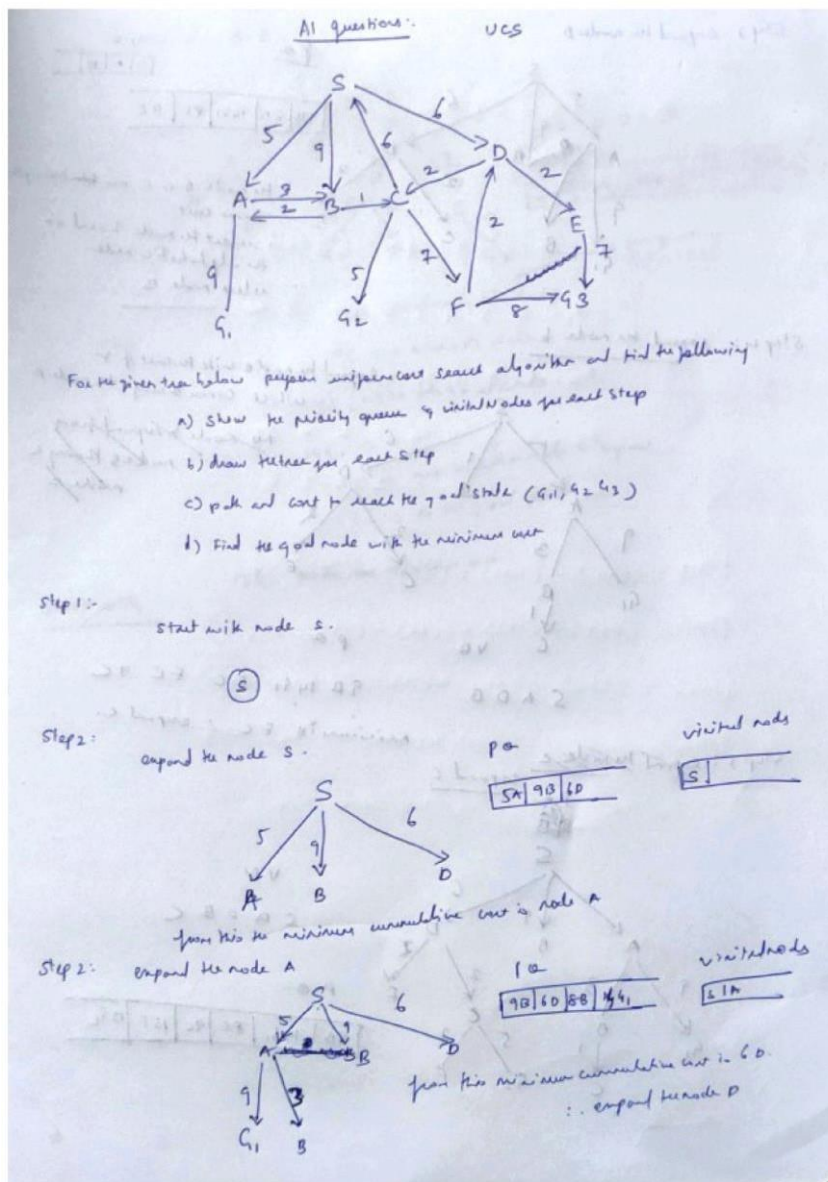 AI questions:. UCS
S
5 9 6 6
A 3 B 1 C 2 D 2
2
9 5 7 2 E 7
G1 G2 F 8 G3
For the given tree below perform uniform cost search algorithm and find the following
a) Show the priority queue & visited Nodes for each step
b) draw the tree for each step
c) path and cost to reach the goal state (G1, G2 G3)
d) Find the goal node with the minimum cost
Step 1:-
start with node S.
S
Step2:
expand the node S. PQ visited nods
5A 9B 6D S
S
5 9 6
A B D
from this the minimum cummulative cost is node A
Step 2: expand the node A PQ visited nods
9B 6D 8B 14G1 S A
S
5 9 6
A B D
9 3
G1 B
from this minimum cummulative cost is 6D.
∴ expand the node D